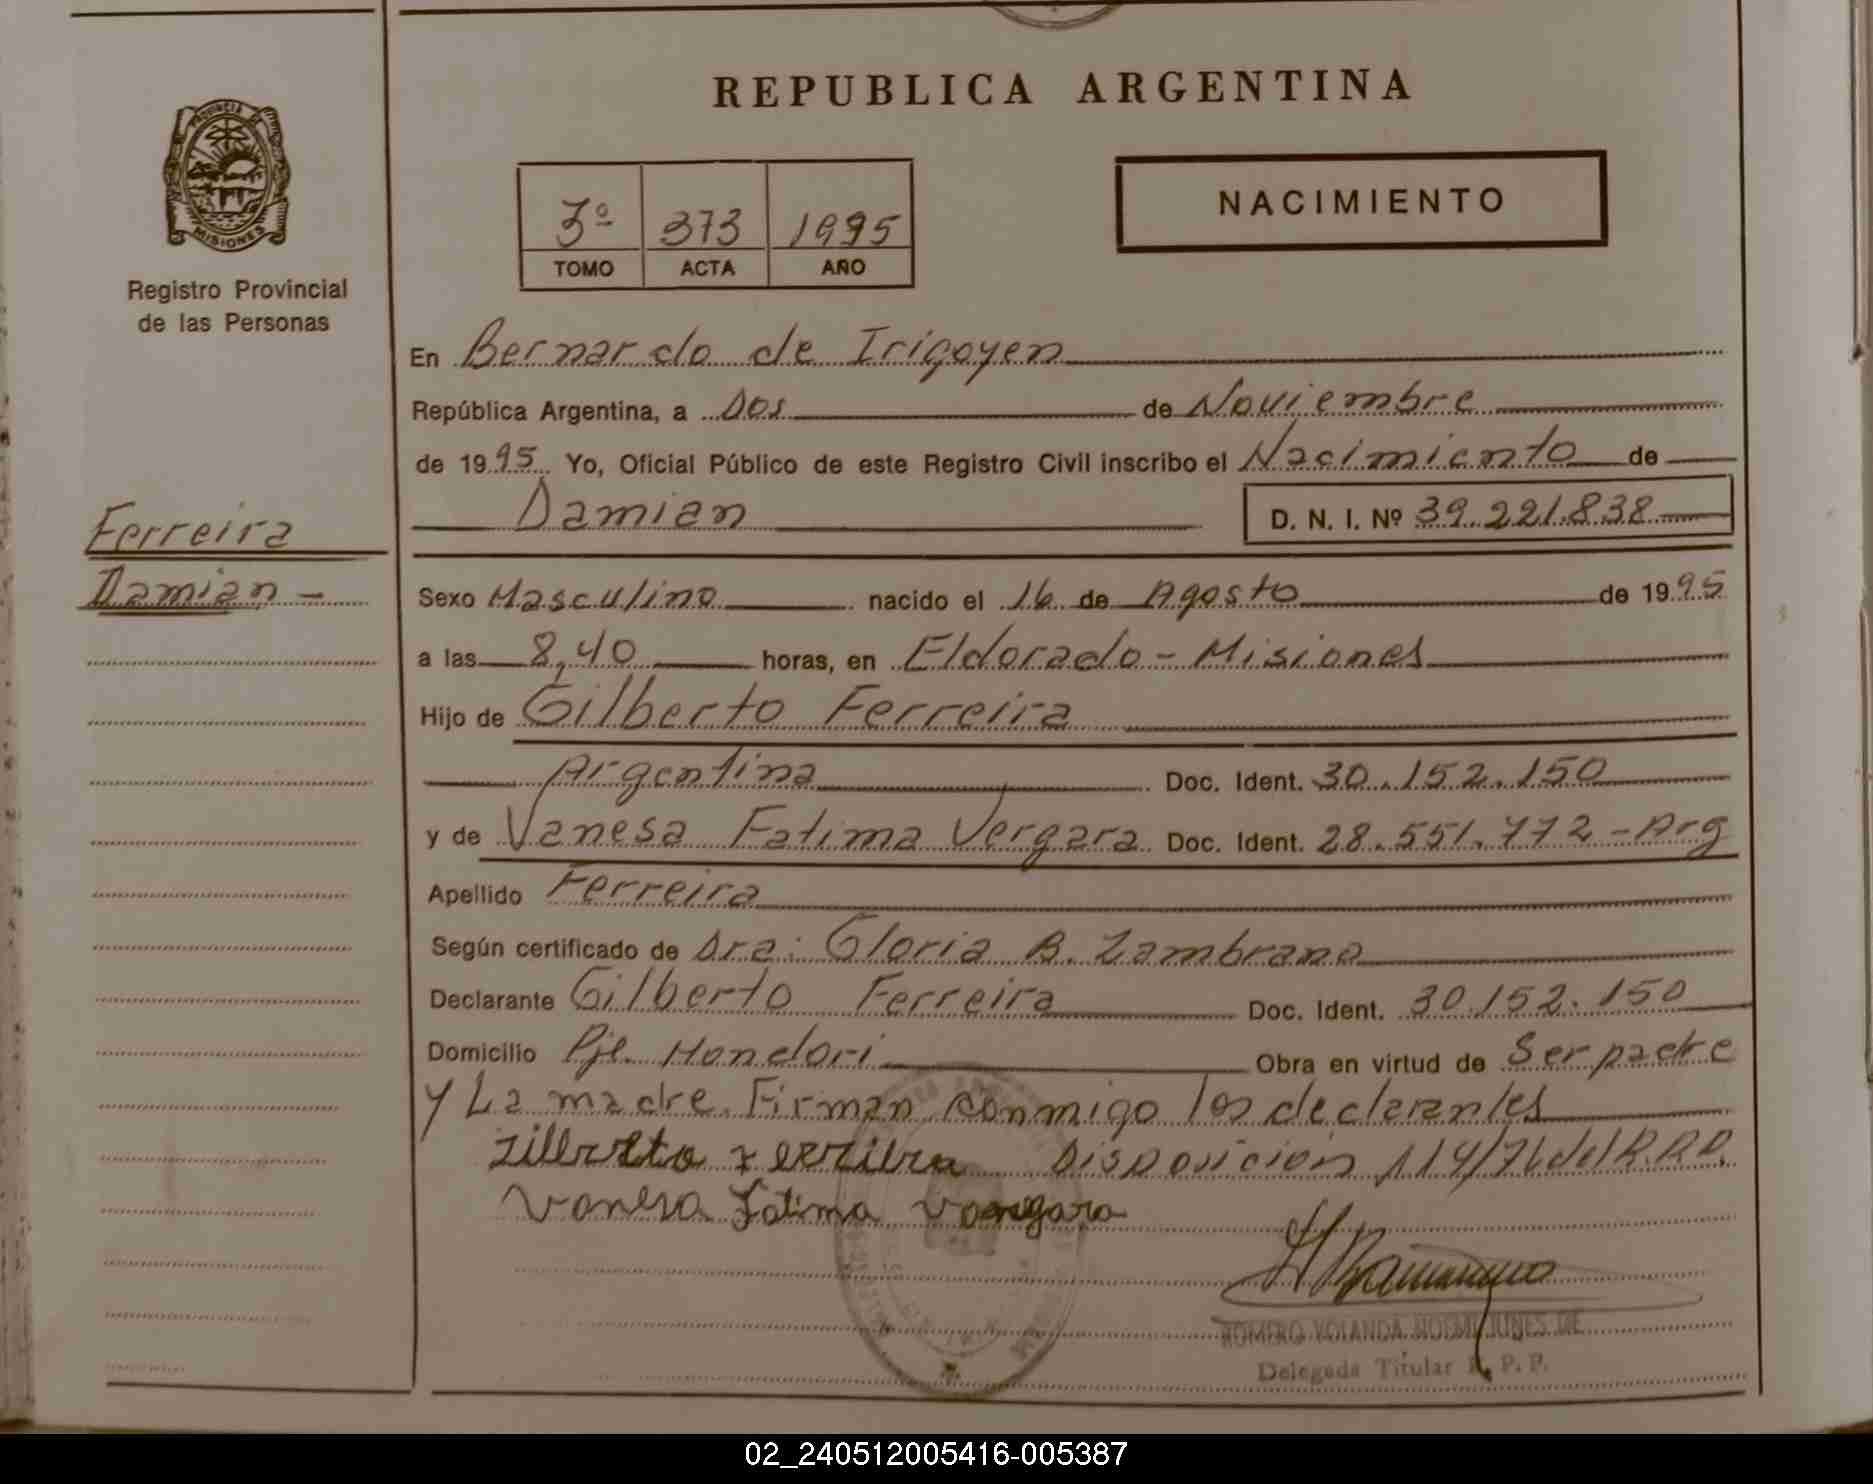 REPUBLICA ARGENTINA
PROVINCIA DE
MISIONES
Registro Provincial
de las Personas
3º 373 1995
TOMO ACTA AÑO
NACIMIENTO
Ferreira
Damian -
En Bernardo de Irigoyen
República Argentina, a Dos de Noviembre
de 1995 Yo, Oficial Público de este Registro Civil inscribo el Nacimiento de
Damian D. N. I. Nº 39.221.838
Sexo Masculino nacido el 16 de Agosto de 1995
a las 8,40 horas, en Eldorado - Misiones
Hijo de Gilberto Ferreira
Argentina Doc. Ident. 30.152.150
y de Vanesa Fatima Vergara Doc. Ident. 28.551.772 - Arg
Apellido Ferreira
Según certificado de Dra: Gloria B. Zambrano
Declarante Gilberto Ferreira Doc. Ident. 30.152.150
Domicilio Pje. Mondori Obra en virtud de Ser padre
y La madre. Firman conmigo los declarantes
Disposición 114/76 del R.P.P.
Vanesa Fatima Vergara
ROMERO YOLANDA NOEMI JUNES DE
Delegada Titular R. P. P.
02_240512005416-005387